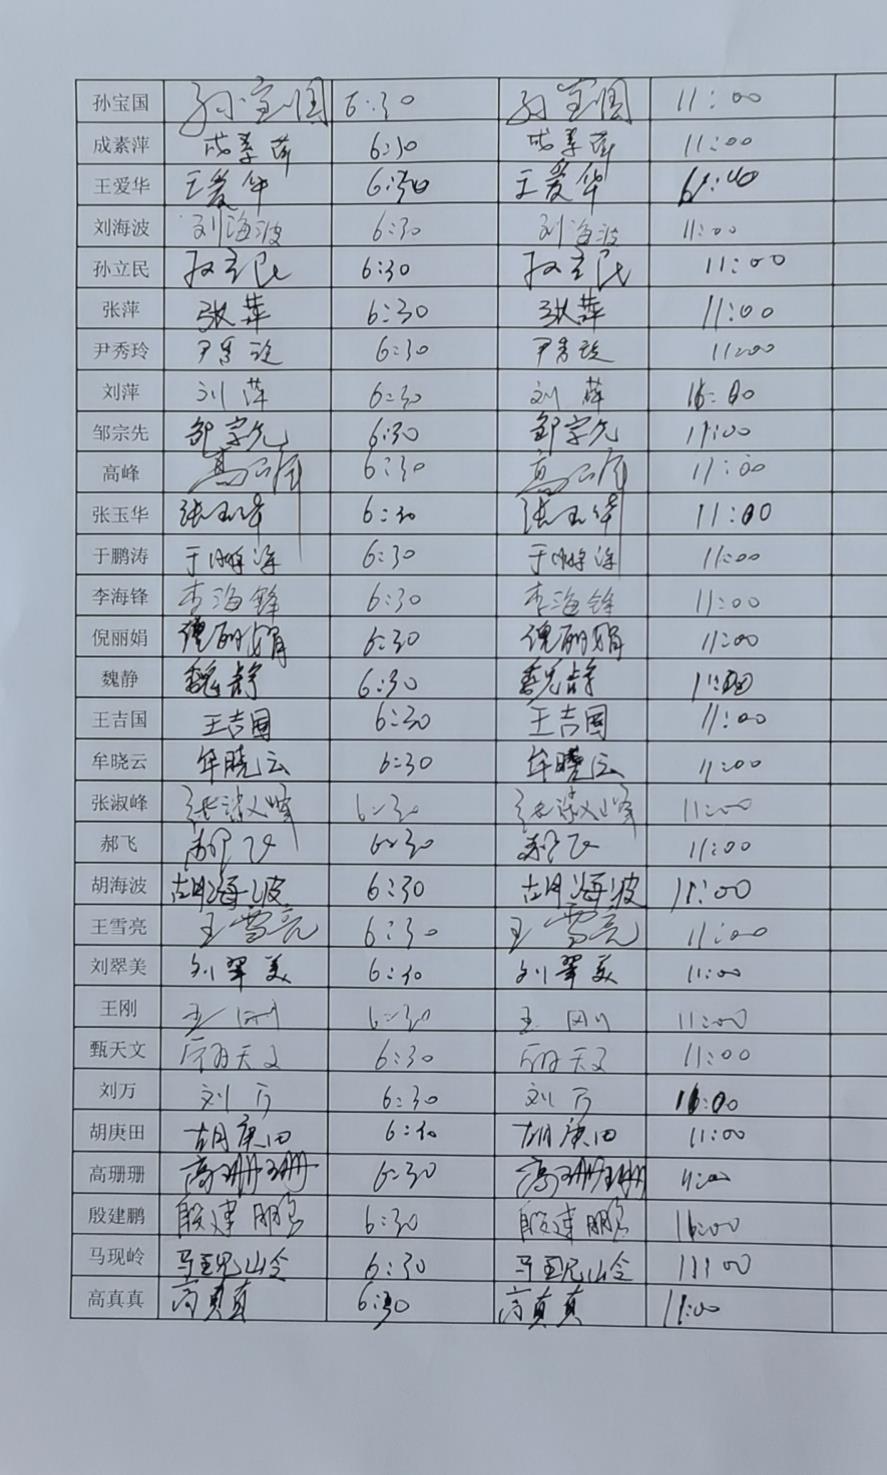 孙宝国 孙宝国 6:30 孙宝国 11:00
成素萍 成素萍 6:30 成素萍 11:00
王爱华 王爱华 6:30 王爱华
刘海波 刘海波 6:30 刘海波 11:00
孙立民 孙立民 6:30 孙立民 11:00
张萍 张萍 6:30 张萍 11:00
尹秀玲 尹秀玲 6:30 尹秀玲 11:00
刘萍 刘萍 6:30 刘萍
邹宗先 邹宗先 6:30 邹宗先 11:00
高峰 6:30 11:00
张玉华 张玉华 6:30 张玉华 11:00
于鹏涛 于鹏涛 6:30 于鹏涛 11:00
李海锋 李海锋 6:30 李海锋 11:00
倪丽娟 倪丽娟 6:30 倪丽娟 11:00
魏静 魏静 6:30 魏静
王吉国 王吉国 6:30 王吉国 11:00
牟晓云 牟晓云 6:30 牟晓云 11:00
张淑峰 张淑峰 6:30 张淑峰 11:00
郝飞 郝飞 6:30 郝飞 11:00
胡海波 胡海波 6:30 胡海波 11:00
王雪亮 王雪亮 6:30 王雪亮 11:00
刘翠美 刘翠美 6:30 刘翠美 11:00
王刚 王刚 6:30 王刚 11:00
甄天文 甄天文 6:30 甄天文 11:00
刘万 刘万 6:30 刘万
胡庚田 胡庚田 6:30 胡庚田 11:00
高珊珊 高珊珊 6:30 高珊珊 11:00
殷建鹏 殷建鹏 6:30 殷建鹏
马现岭 马现岭 6:30 马现岭 11:00
高真真 高真真 6:30 高真真 11:00